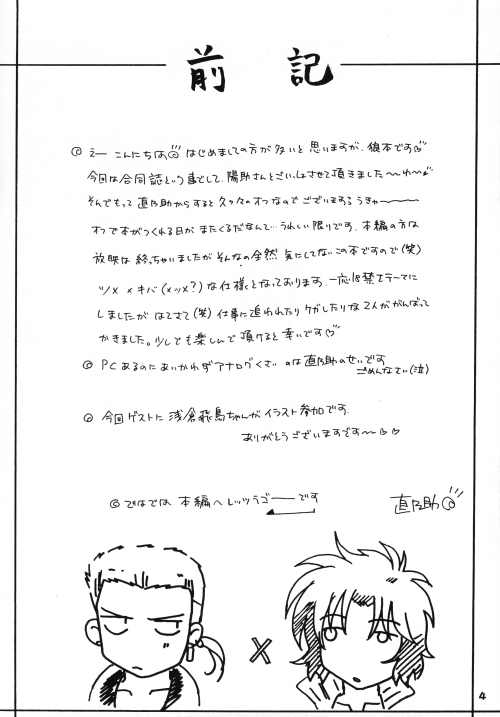 前記
◎ えー こんにちは◎ はじめましての方が多いと思いますが、狼本です♡
今回は合同誌という事でして、陽助さんとごいっしょさせて頂きました〜わ〜
そんでもって直乃助からすると久々のオフなのでございまするうきゃ〜〜
オフで本がつくれる日がまたくるだなんて…うれしい限りです。本編の方は
放映は終っちゃいましたがそんなの全然気にしてないこの本ですので(笑)
ツメ × キバ (メッメ?) な仕様となっております。一応18禁をテーマに
しましたが はてさて(笑) 仕事に追われたりケガしたりな2人ががんばって
かきました。少しでも楽しんで頂けると幸いです♡
◎ PCあるのにあいかわらずアナログくさいのは直乃助のせいです
ごめんなさい(泣)
◎ 今回ゲストに浅倉飛鳥ちゃんがイラスト参加です。
ありがとうございますです〜♡♡
◎ でわでは 本編へレッツラゴーーです
直乃助◎
×
4